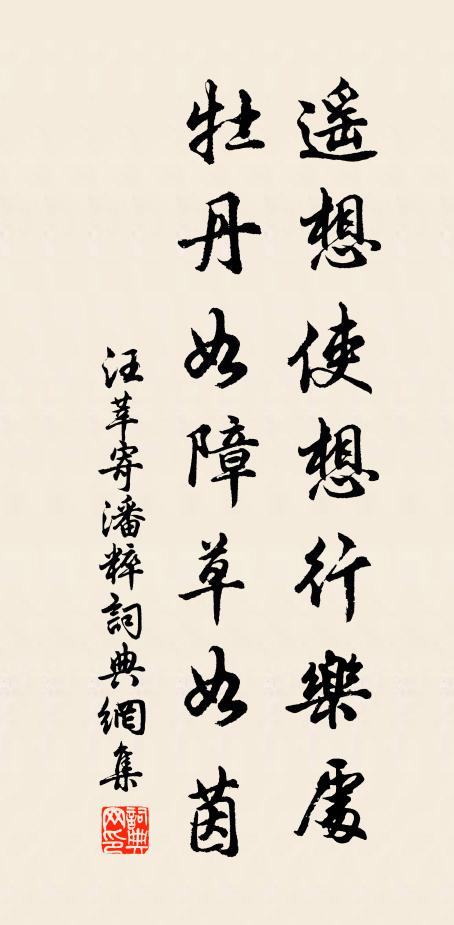 遥想使想行樂處
牡丹如障草如茵
汪莘寄潘粹詞典網集
詞典網印